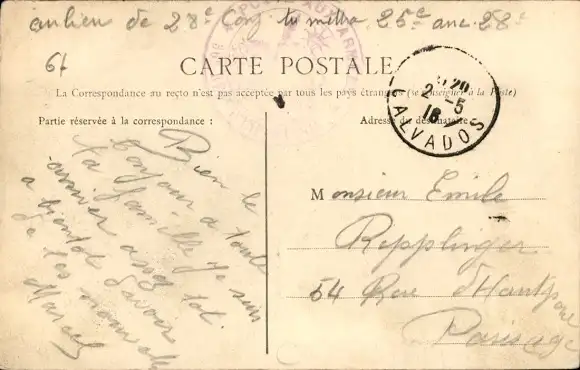 au lieu de 28e Cong tu mettra 25e anc. 28e
61
CARTE POSTALE
La Correspondance au recto n'est pas acceptée par tous les pays étrangers (se renseigner à la Poste)
Partie réservée à la correspondance :
Adresse du destinataire
20
2-5
18
CALVADOS
Bien le
bonjour a toute
ta famille je suis
arrivier assez tot.
a bientot savoir
de tes nouvelle
Marcel
Monsieur Emile
Ripplinger
54 Rue d'Hautpoul
Paris 19e